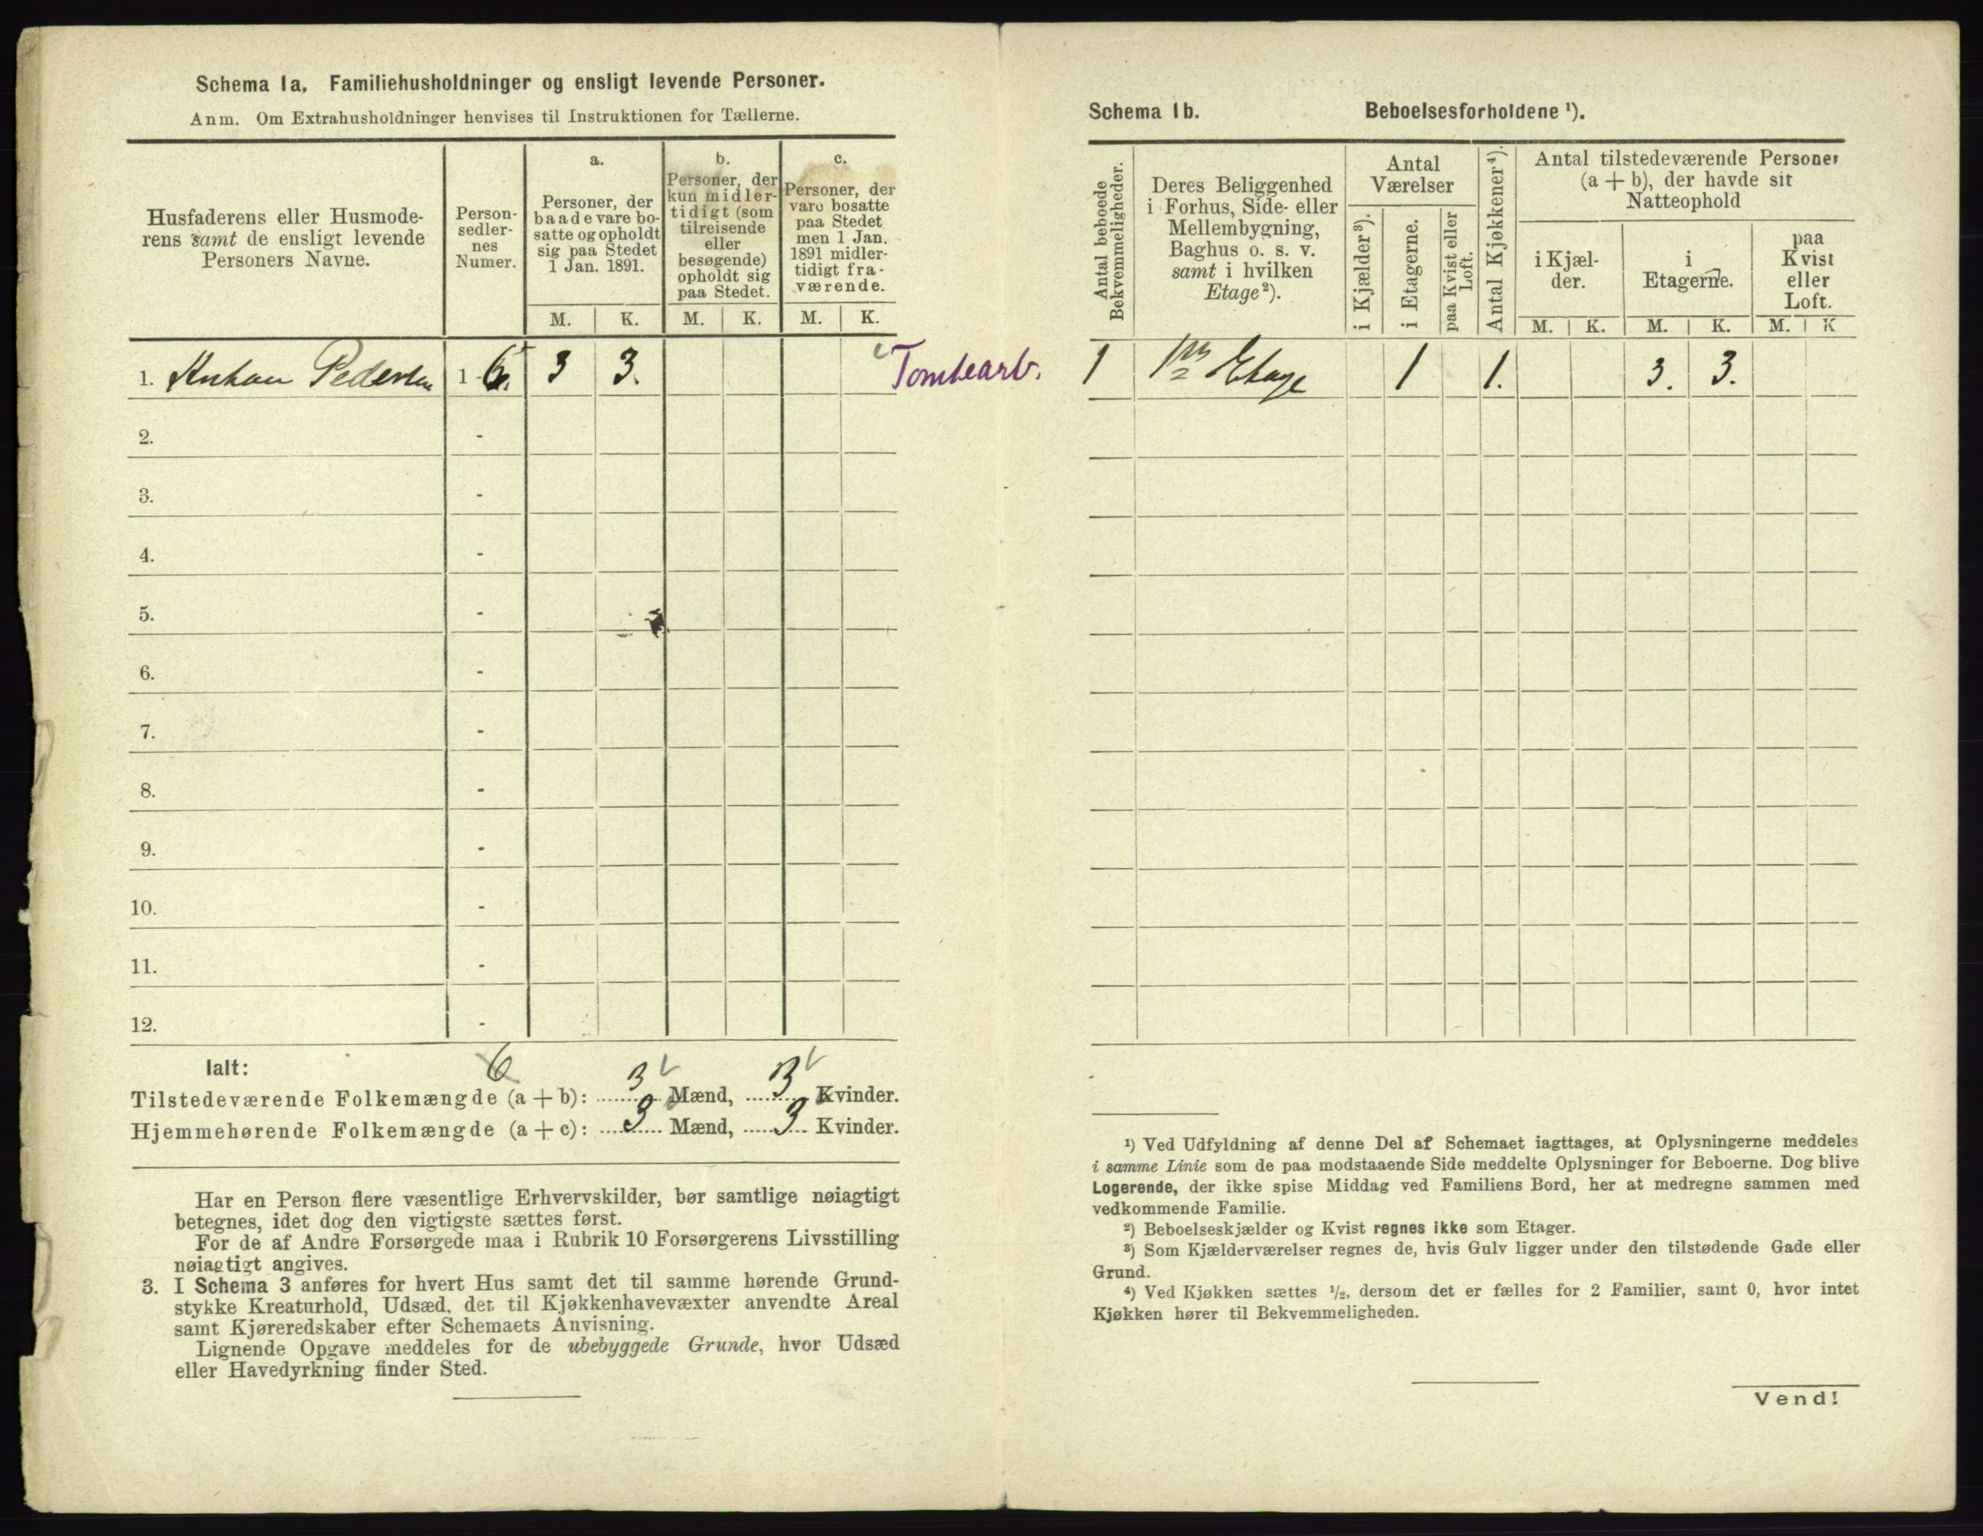 Schema 1a. Familiehusholdninger og ensligt levende Personer.
Anm. Om Extrahusholdninger henvises til Instruktionen for Tællerne.
Husfaderens eller Husmode-
rens samt de ensligt levende
Personers Navne.
Person-
sedler-
nes
Numer.
a.
Personer, der
baade vare bo-
satte og opholdt
sig paa Stedet
1 Jan. 1891.
b.
Personer, der
kun midler-
tidigt (som
tilreisende
eller
besøgende)
opholdt sig
paa Stedet.
c.
Personer, der
vare bosatte
paa Stedet
men 1 Jan.
1891 midler-
tidigt fra-
værende.
M. K. M. K. M. K.
1. Anton Pedersen 1 - 6. 3 3. Tomtearb.
2. -
3. -
4. -
5. -
6. -
7. -
8. -
9. -
10. -
11. -
12. -
Ialt: 6
Tilstedeværende Folkemængde (a + b): 3 Mænd, 3 Kvinder.
Hjemmehørende Folkemængde (a + c): 3 Mænd, 3 Kvinder.
Har en Person flere væsentlige Erhvervskilder, bør samtlige nøiagtigt
betegnes, idet dog den vigtigste sættes først.
For de af Andre Forsørgede maa i Rubrik 10 Forsørgerens Livsstilling
nøiagtigt angives.
3. I Schema 3 anføres for hvert Hus samt det til samme hørende Grund-
stykke Kreaturhold, Udsæd, det til Kjøkkenhavevæxter anvendte Areal
samt Kjøreredskaber efter Schemaets Anvisning.
Lignende Opgave meddeles for de ubebyggede Grunde, hvor Udsæd
eller Havedyrkning finder Sted.
Schema 1b. Beboelsesforholdene ¹).
Antal beboede
Bekvemmeligheder.
Deres Beliggenhed
i Forhus, Side- eller
Mellembygning,
Baghus o. s. v.
samt i hvilken
Etage²).
Antal
Værelser
i Kjælder³).
i Etagerne.
paa Kvist eller
Loft.
Antal Kjøkkener⁴).
Antal tilstedeværende Personer
(a + b), der havde sit
Natteophold
i Kjæl-
der.
i
Etagerne.
paa
Kvist
eller
Loft.
M. K. M. K. M. K
1 Etage 1 1. 3. 3.
¹) Ved Udfyldning af denne Del af Schemaet iagttages, at Oplysningerne meddeles
i samme Linie som de paa modstaaende Side meddelte Oplysninger for Beboerne. Dog blive
Logerende, der ikke spise Middag ved Familiens Bord, her at medregne sammen med
vedkommende Familie.
²) Beboelseskjælder og Kvist regnes ikke som Etager.
³) Som Kjælderværelser regnes de, hvis Gulv ligger under den tilstødende Gade eller
Grund.
⁴) Ved Kjøkken sættes ½, dersom det er fælles for 2 Familier, samt 0, hvor intet
Kjøkken hører til Bekvemmeligheden.
Vend!